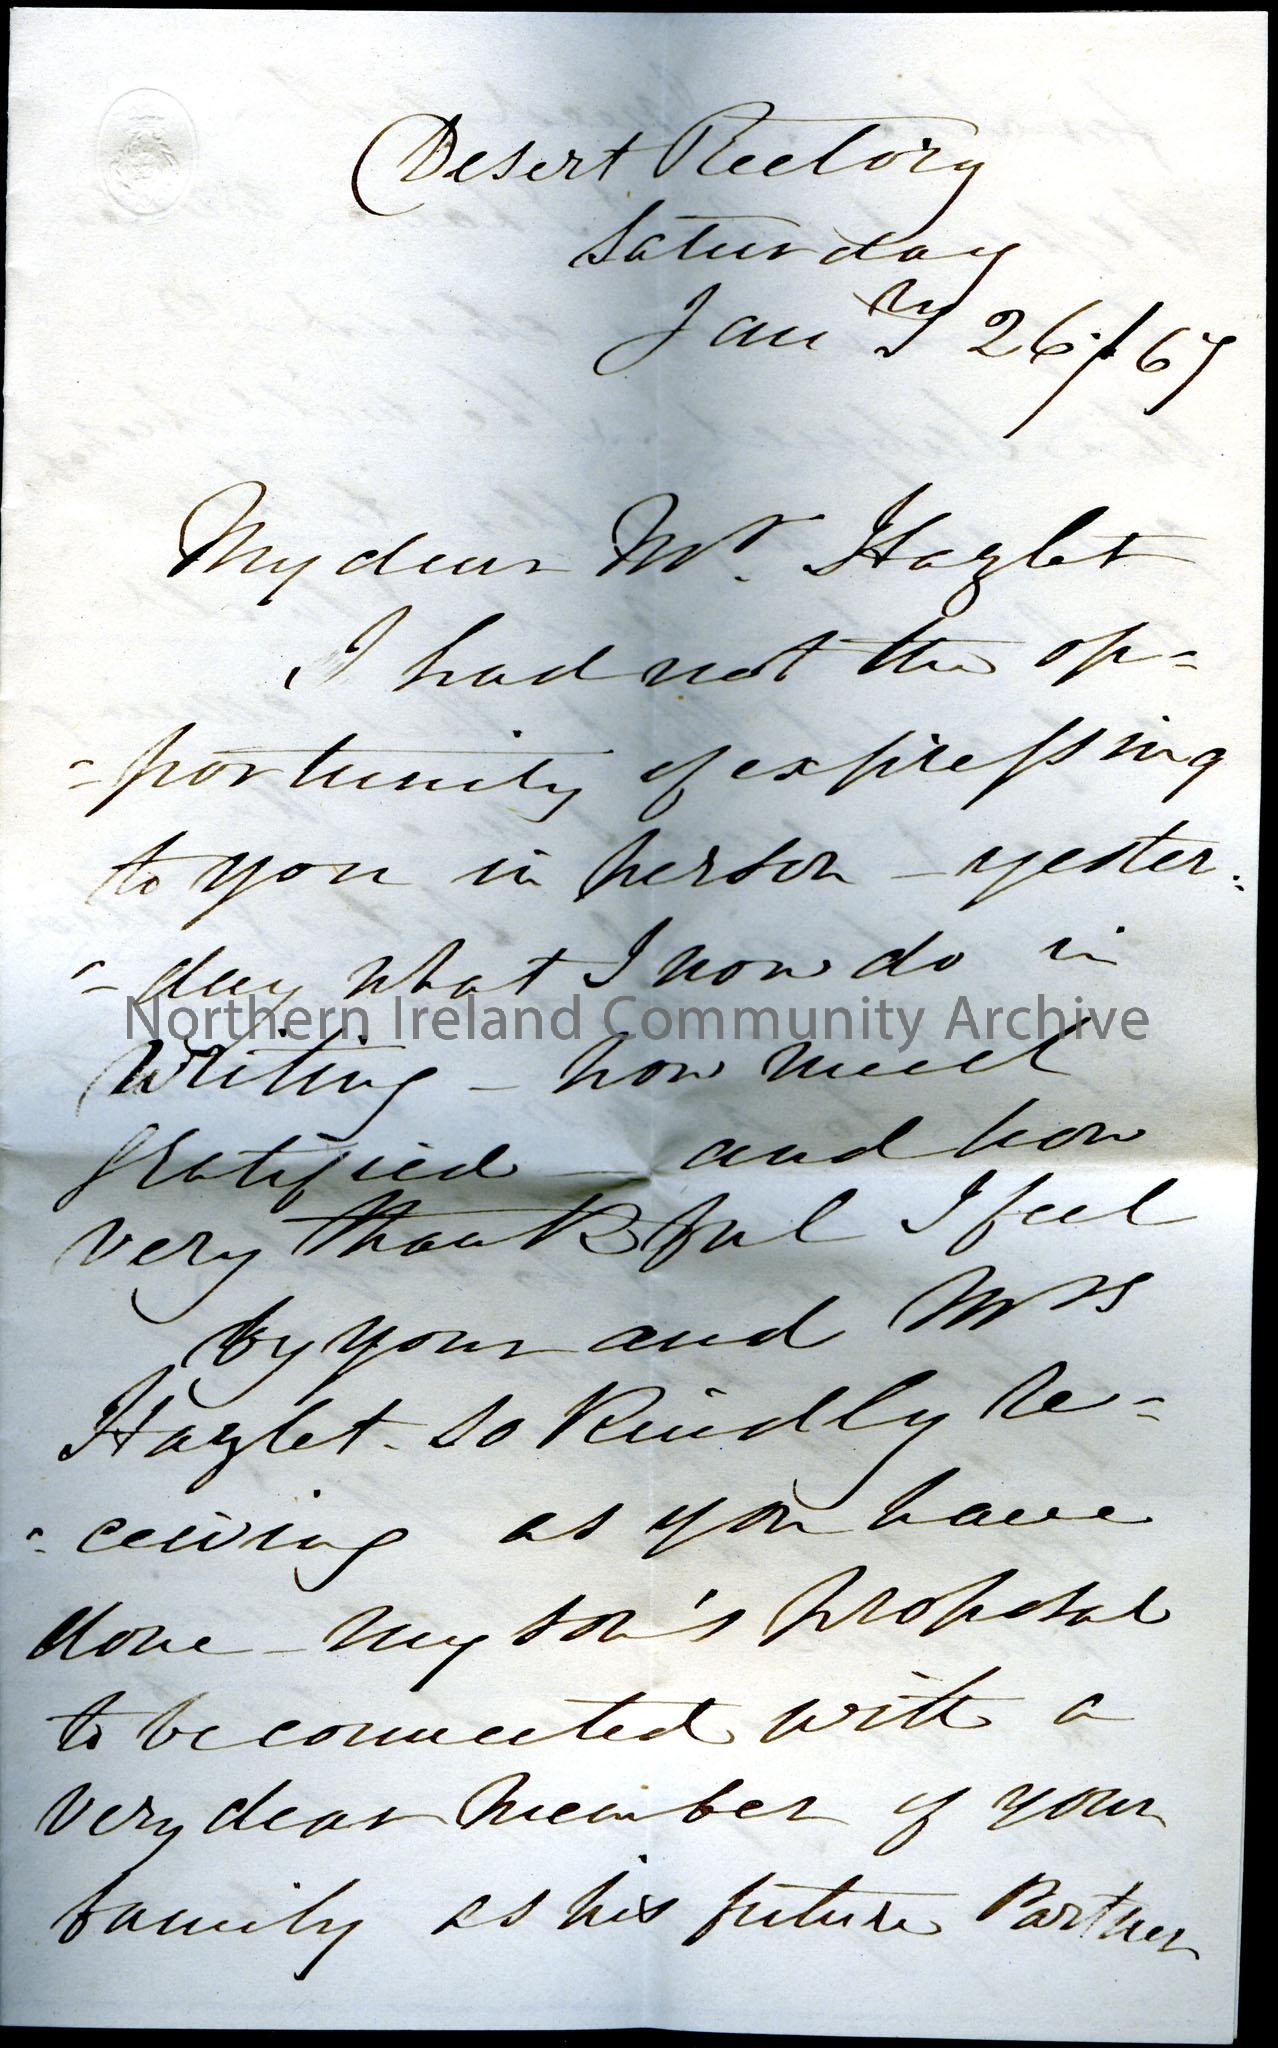 Desert Rectory
Saturday
Jan ry 26./67
My dear Mr. Hazlet
I had not the op=
=portunity of expressing
to you in person - yester=
=day what I now do in
Northern Ireland Community Archive
Writing - how much
gratified - and how
very thankful I feel
by your and Mrs
Hazlet - so kindly re=
=ceiving as you have
done - my son's proposal
to be connected with a
very dear member of your
family as his future Partner